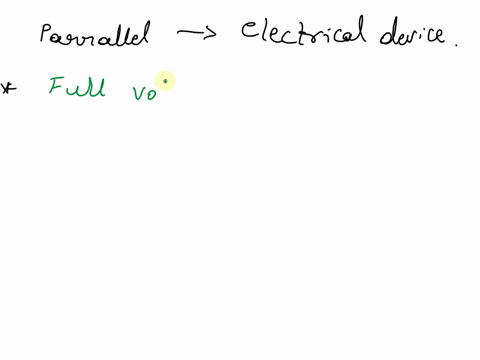 Parrallel → Electrical device.
* Full vo